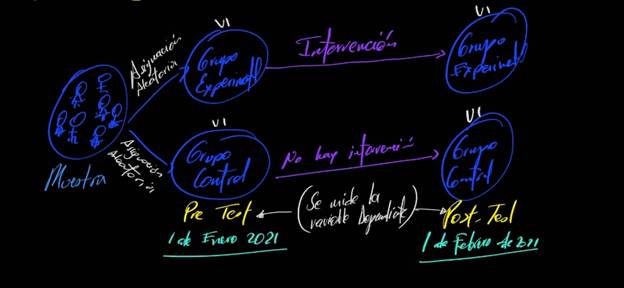 VI
Grupo
Experimetl
Asignación
Aleatoria
Intervención
VI
Grupo
Experimetl
Muestra
Asignación
Aleatoria
VI
Grupo
Control
No hay intervenció
VI
Grupo
Control
Pre Test
(Se mide la
variable Dependiente)
Post-Test
1 de Enero 2021
1 de Febrero de 2021